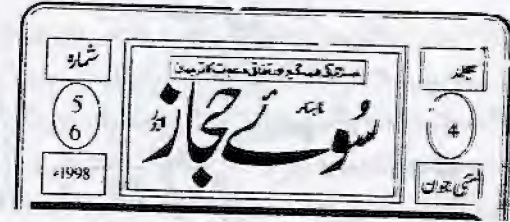 جلد
4
مئی جون
ماہنامہ
سُوئے حجاز
لاہور
شمارہ
5
6
1998ء